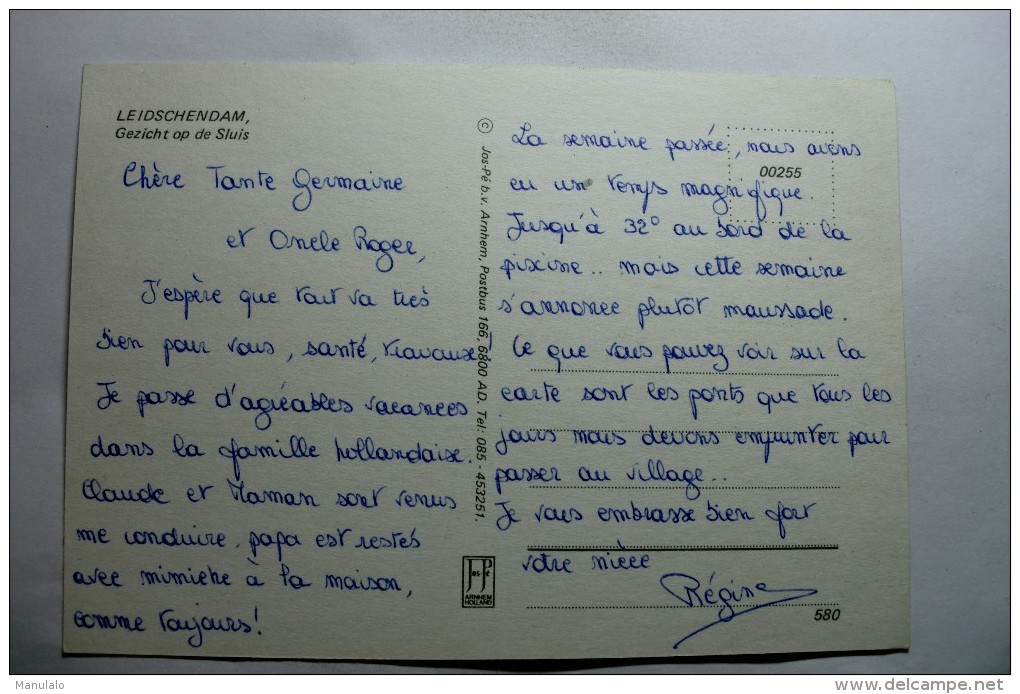 LEIDSCHENDAM,
Gezicht op de Sluis
Chère Tante Germaine
et Oncle Roger,
J'espère que tout va très
bien pour vous, santé, travaux!
Je passe d'agréables vacances
dans la famille hollandaise.
Claude et Maman sont venus
me conduire, papa est restés
avec mimiche à la maison,
comme toujours!
© Jos-Pé b.v. Arnhem, Postbus 166, 6800 AD. Tel: 085 - 453251.
Jos Pé
ARNHEM
HOLLAND
La semaine passée, nous avons
eu un temps magnifique.
Jusqu'à 32° au bord de la
piscine.. mais cette semaine
s'annonce plutôt maussade.
Ce que vous pouvez voir sur la
carte sont les ponts que tous les
jours nous devons emprunter pour
passer au village..
Je vous embrasse bien fort
votre nièce
Régine
00255
580
Manulalo
delcampe.net